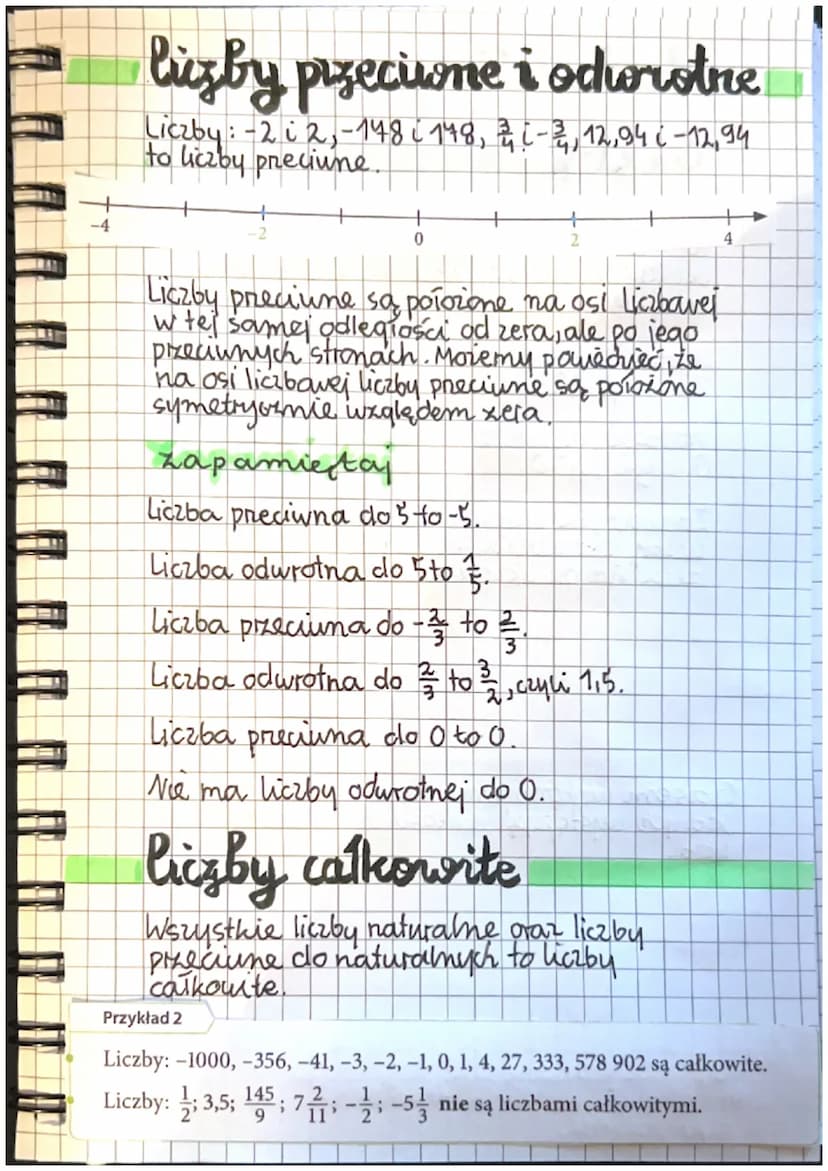 liczby przeciwne i odwrotne
Liczby: -2 i 2, -148 i 148, 3/4 i -3/4, 12,94 i -12,94
to liczby preciwne.
-4 -2 0 2 4
Liczby preciwne są położone na osi liczbowej
w tej samej odległości od zera, ale po jego
przeciwnych stronach. Możemy powiedzieć, że
na osi liczbowej liczby preciwne są położone
symetrycznie względem zera.
zapamiętaj
Liczba preciwna do 5 to -5.
Liczba odwrotna do 5 to 1/5.
Liczba przeciwna do -2/3 to 2/3.
Liczba odwrotna do 2/3 to 3/2, czyli 1,5.
Liczba preciwna do 0 to 0.
Nie ma liczby odwrotnej do 0.
liczby całkowite
Wszystkie liczby naturalne oraz liczby
przeciwne do naturalnych to liczby
całkowite.
Przykład 2
Liczby: −1000, −356, −41, −3, −2, −1, 0, 1, 4, 27, 333, 578 902 są całkowite.
Liczby: 1/2; 3,5; 145/9; 7 2/11; −1/2; −5 1/3 nie są liczbami całkowitymi.